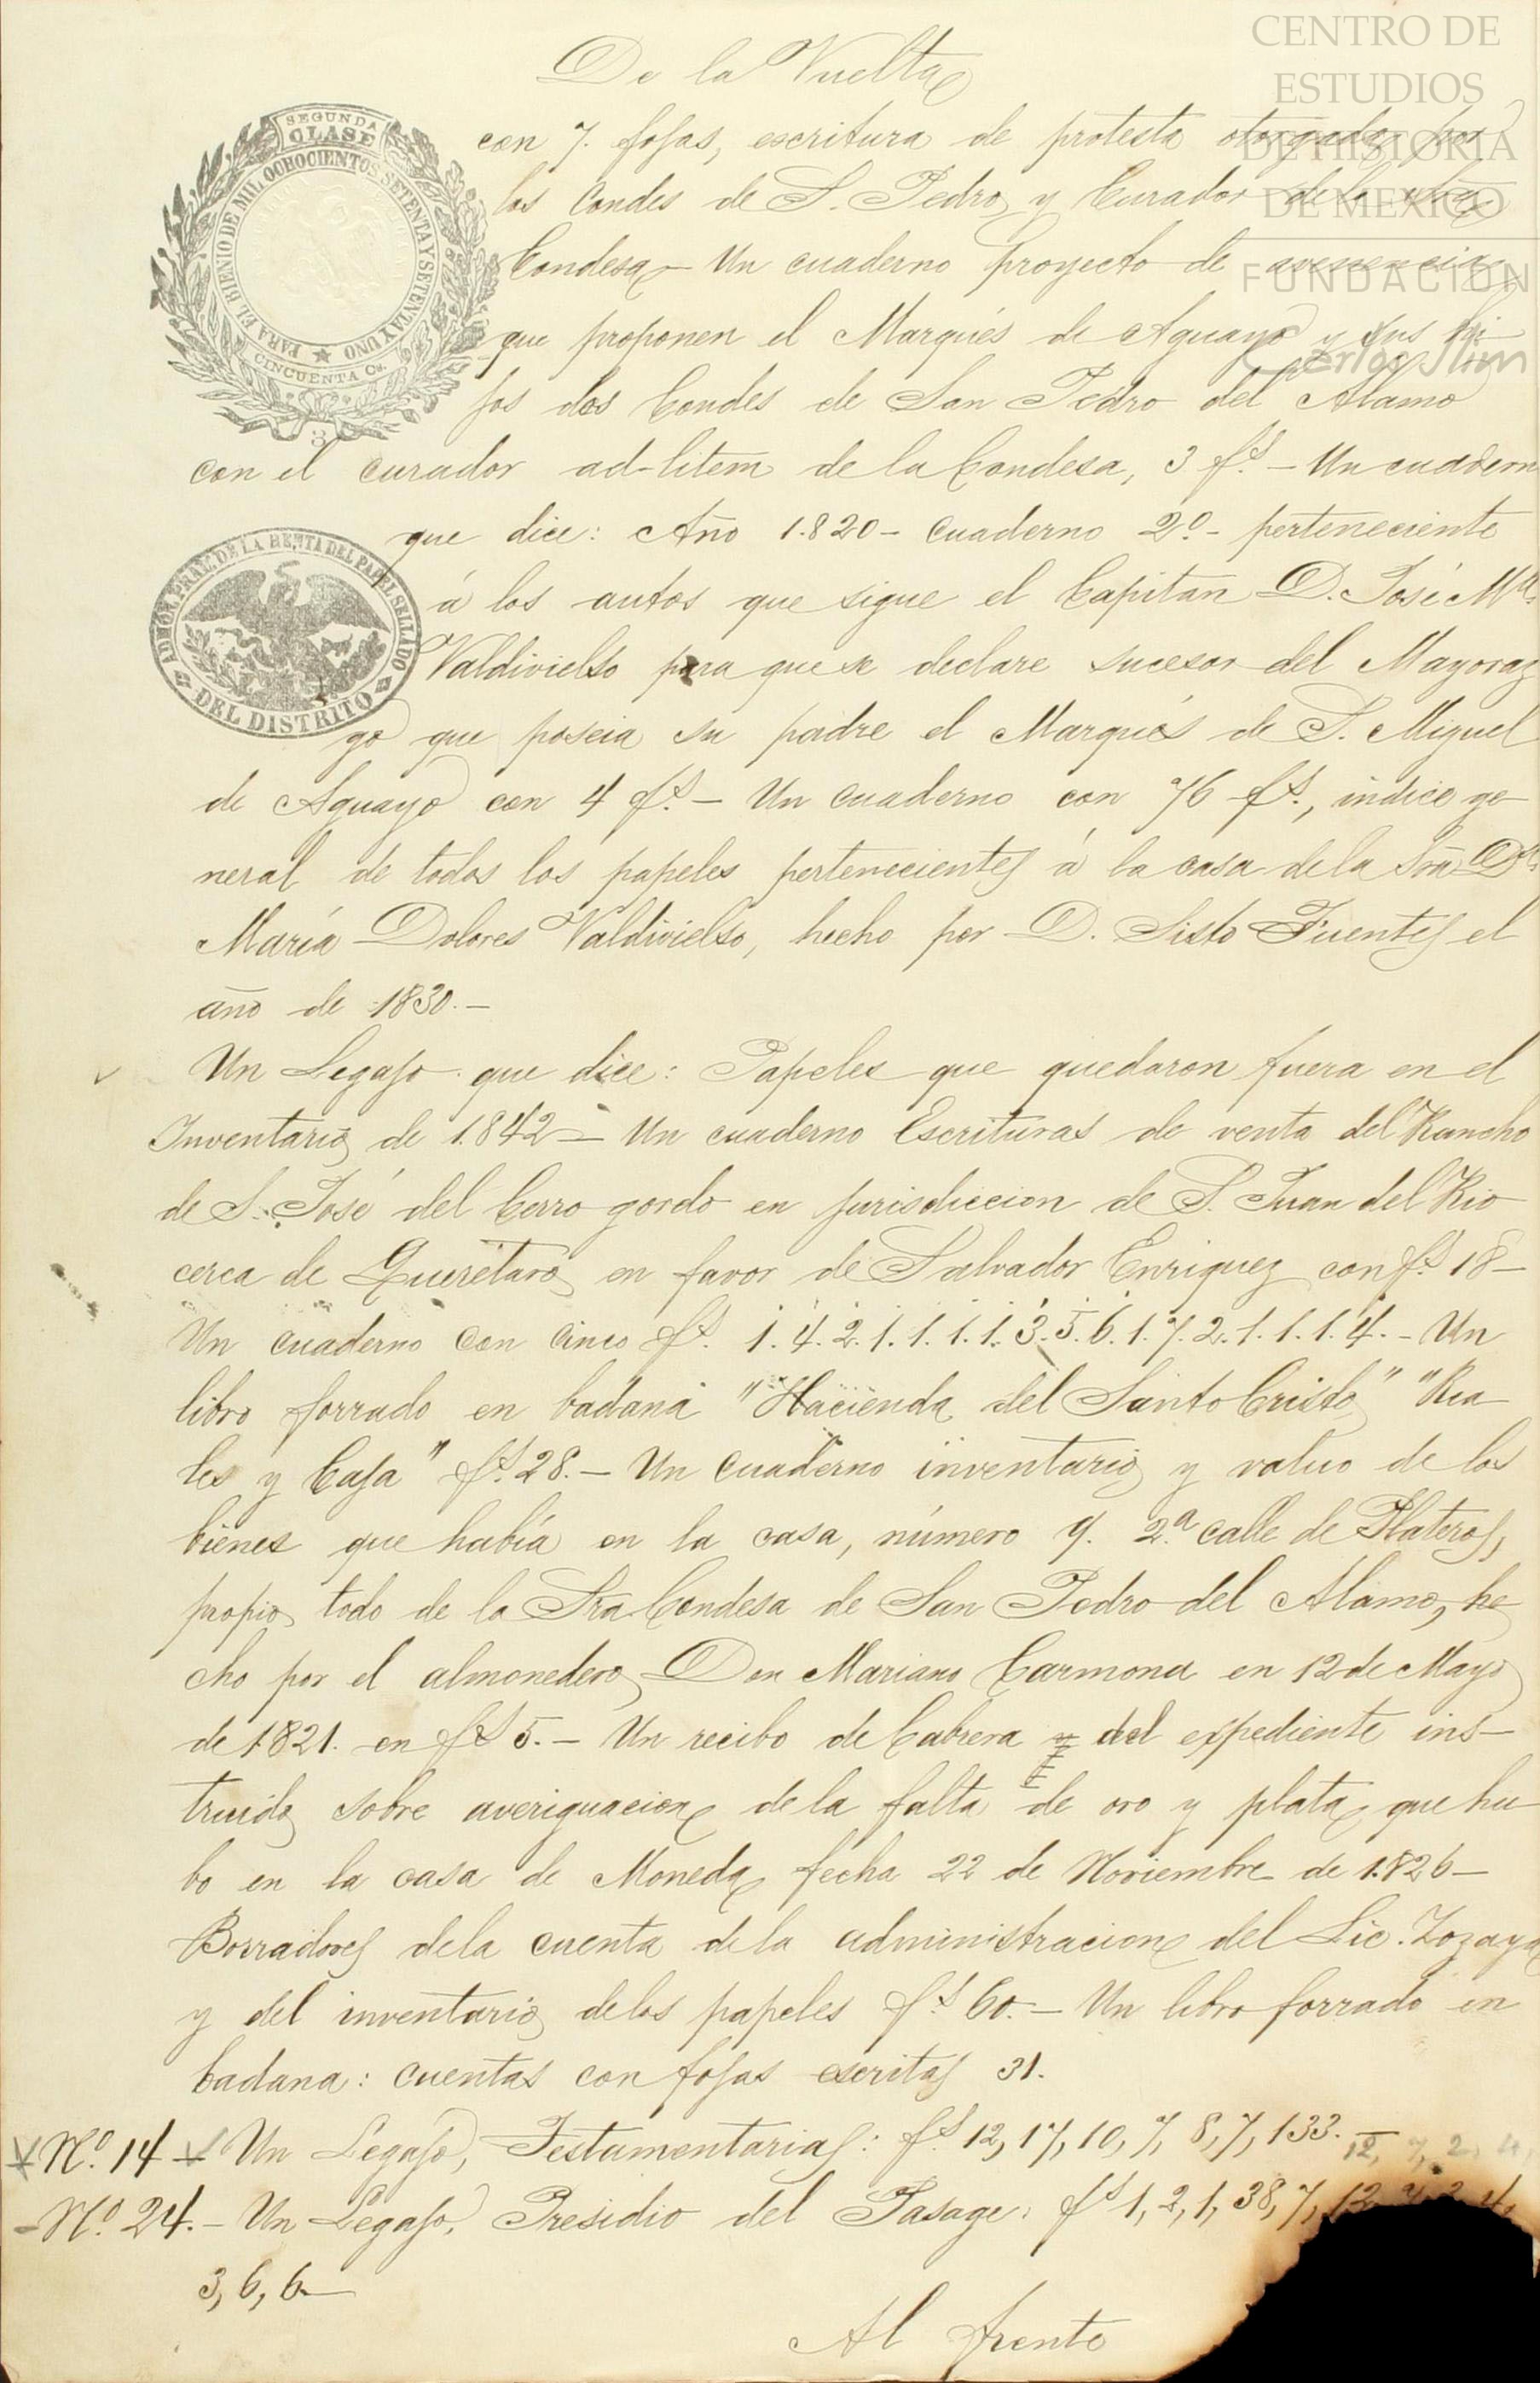 De la Vuelta
con 7. fojas, escritura de protesta otorgada por
los Condes de S. Pedro y Curador de la
Condesa - Un cuaderno proyecto de avenencia
que proponen el Marqués de Aguayo y sus hi-
jos los Condes de San Pedro del Alamo
con el curador ad-litem de la Condesa, 3 fs. - Un cuadern
que dice: Año 1.820 - cuaderno 2º - perteneciente
á los autos que sigue el Capitan D. José Ma.
Valdivielso para que se declare sucesor del Mayoraz
go que poseia su padre el Marqués de S. Miguel
de Aguayo con 4 fs. - Un cuaderno con 76 fs., indice ge-
neral de todos los papeles pertenecientes á la casa de la Sra. Da.
María Dolores Valdivielso, hecho por D. Sisto Fuentes el
año de 1830. -
Un Legajo que dice: Papeles que quedaron fuera en el
Inventario de 1.842 - Un cuaderno Escrituras de venta del Rancho
de S. José del Cerro gordo en jurisdiccion de S. Juan del Rio
cerca de Querétaro en favor de Salvador Enriquez con fs. 18 -
Un cuaderno con cinco fs. 1. 4. 2. 1. 1. 1. 1. 3. 5. 6. 1. 7. 2. 1. 1. 1. 4. - Un
libro forrado en badana "Hacienda del Santo Cristo" "Rea-
les y Caja" fs. 28. - Un cuaderno inventario y valuo de los
bienes que había en la casa, número 9. 2.ª calle de Plateros,
propio todo de la Sra. Condesa de San Pedro del Alamo, he
cho por el almonedero Don Mariano Carmona en 12 de Mayo
de 1821. en fs 5. - Un recibo de Cabrera del expediente ins-
truido sobre averiguacion de la falta de oro y plata que hu-
bo en la casa de Moneda fecha 22 de Noviembre de 1.826 -
Borradores de la cuenta de la administracion del Lic. Zozaya
y del inventario de los papeles fs. 60. - Un libro forrado en
badana: cuentas con fojas escritas 31.
Nº. 14 - Un Legajo, Testamentarias: fs. 12, 17, 10, 7, 8, 7, 133. -
12, 7, 2, 4,
- Nº. 24. - Un Legajo, Presidio del Pasage: fs 1, 2, 1, 38, 7, 12, 7, 2, 4,
3, 6, 6 -
Al frente
SEGUNDA
CLASE
PARA EL BIENIO DE MIL OCHOCIENTOS SETENTA Y SETENTA Y UNO
CINCUENTA Cs.
3
ADMON PRAL DE LA RENTA DEL PAPEL SELLADO
DEL DISTRITO
CENTRO DE
ESTUDIOS
DE HISTORIA
DE MEXICO
FUNDACIÓN
Carlos Slim